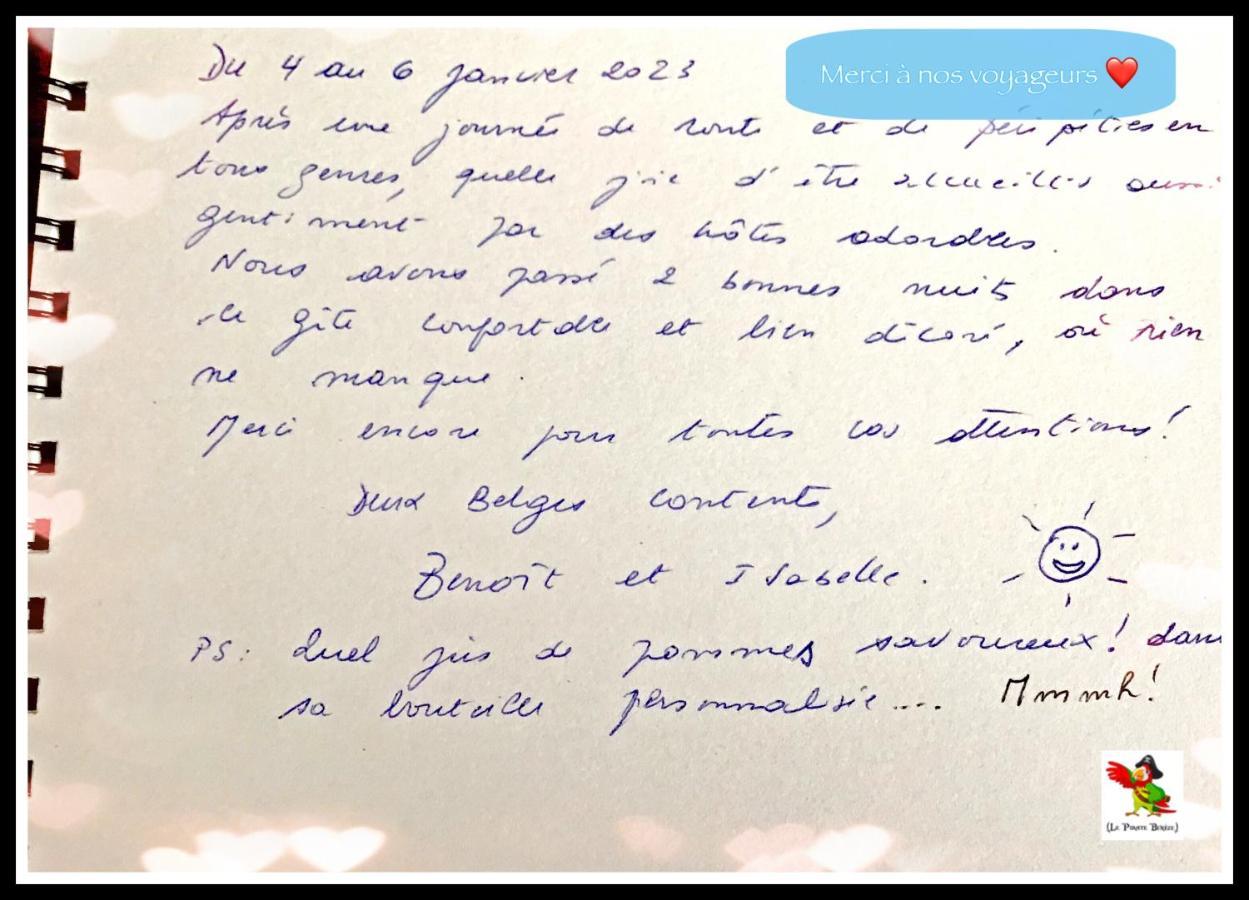 Du 4 au 6 janvier 2023
Merci à nos voyageurs ❤️
Après une journée de route et de péripéties en
tous genres, quelle joie d'être accueillis aussi
gentiment par des hôtes adorables.
Nous avons passé 2 bonnes nuits dans
le gîte confortable et bien décoré, où rien
ne manque.
Merci encore pour toutes vos attentions!
Deux Belges contents,
Benoît et Isabelle.
PS: Quel jus de pommes savoureux! dans
sa bouteille personnalisée.... Mmmh!
(Le Pirate